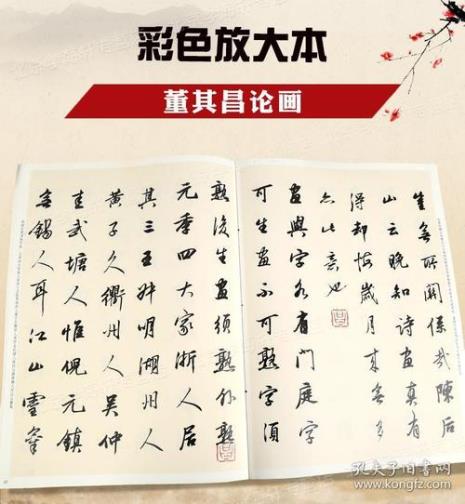 彩色放大本
董其昌论画
豈無所關係哉陳后
山云晚知詩畫真有
得却悔歲月來無多
亦此意也
畫與字各有門庭字
可生畫不可熟字須
熟後生畫須熟外熟
元季四大家浙人居
其三王叔明湖州人
黄子久衢州人吳仲
圭武塘人惟倪元鎮
無錫人耳江山靈氣
孔夫子旧书网
www.kongfz.com